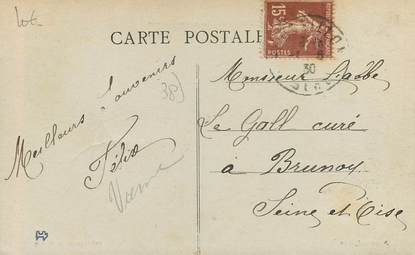 CARTE POSTALE
15c
POSTES
30
Meilleurs Souvenirs
Félix
38
Monsieur L'abbé
Le Gall curé
à Brunoy
Seine et Oise